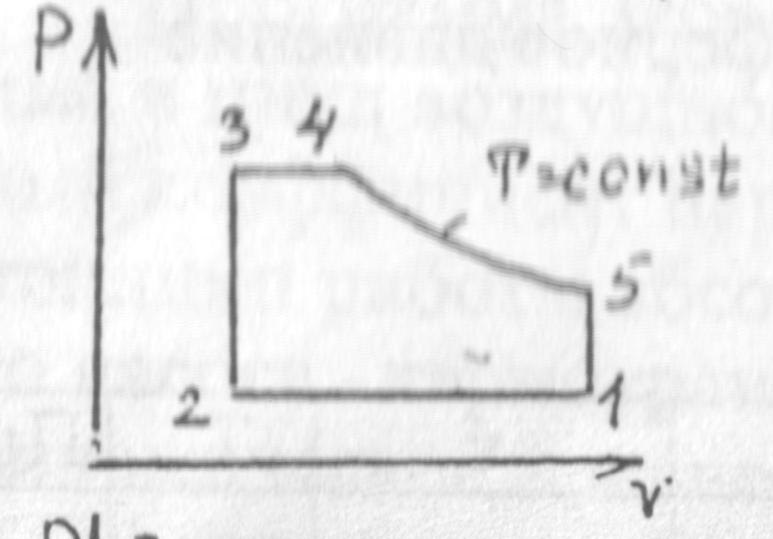 P
3 4
T=const
5
2
1
v